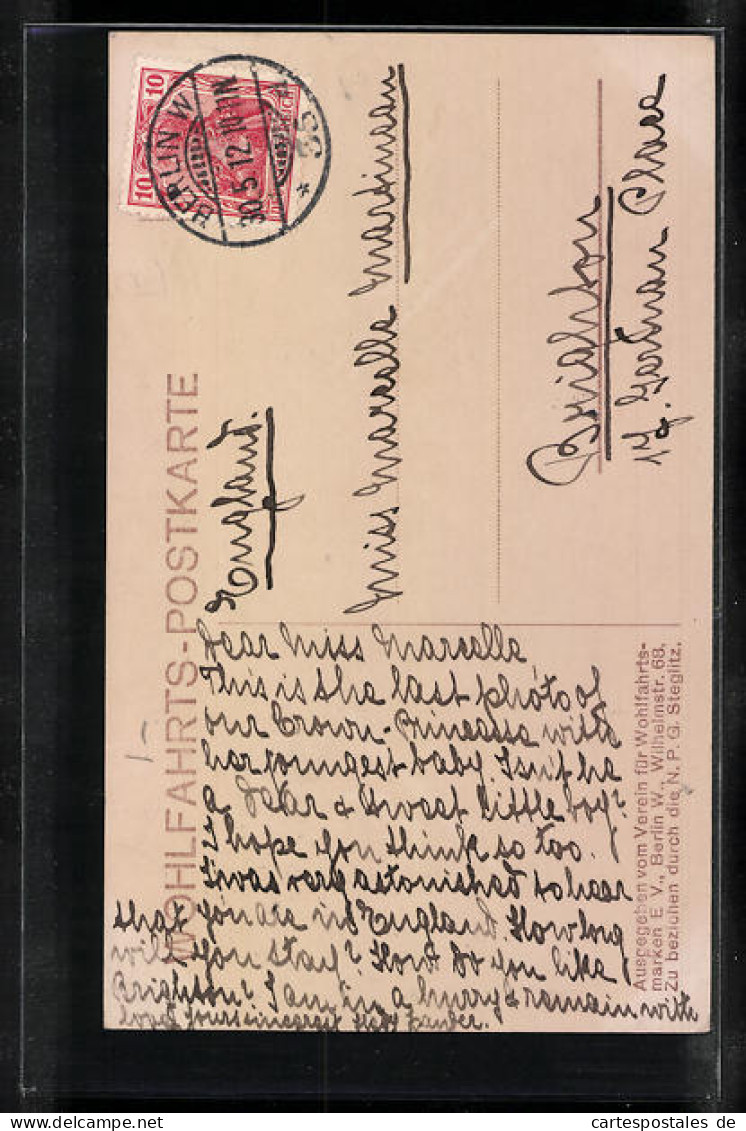 WOHLFAHRTS-POSTKARTE
10
10
BERLIN W
30.5.12.10-11N.
* 35
England.
Miss Marcelle Martineau
Brighton
17. German Place
Dear Miss Marcelle,
This is the last photo of
our Crown-Princesse with
her youngest baby. Isn't he
a dear & sweet little boy?
I hope you think so too.
I was very astonished to hear
that you are in England. How long
will you stay? How do you like
Brighton? I am in a hurry & remain with
love yours sincerely
Ausgegeben vom Verein für Wohlfahrts-
marken E. V., Berlin W., Wilhelmstr. 68.
Zu beziehen durch die N. P. G. Steglitz.
cartespostales.de